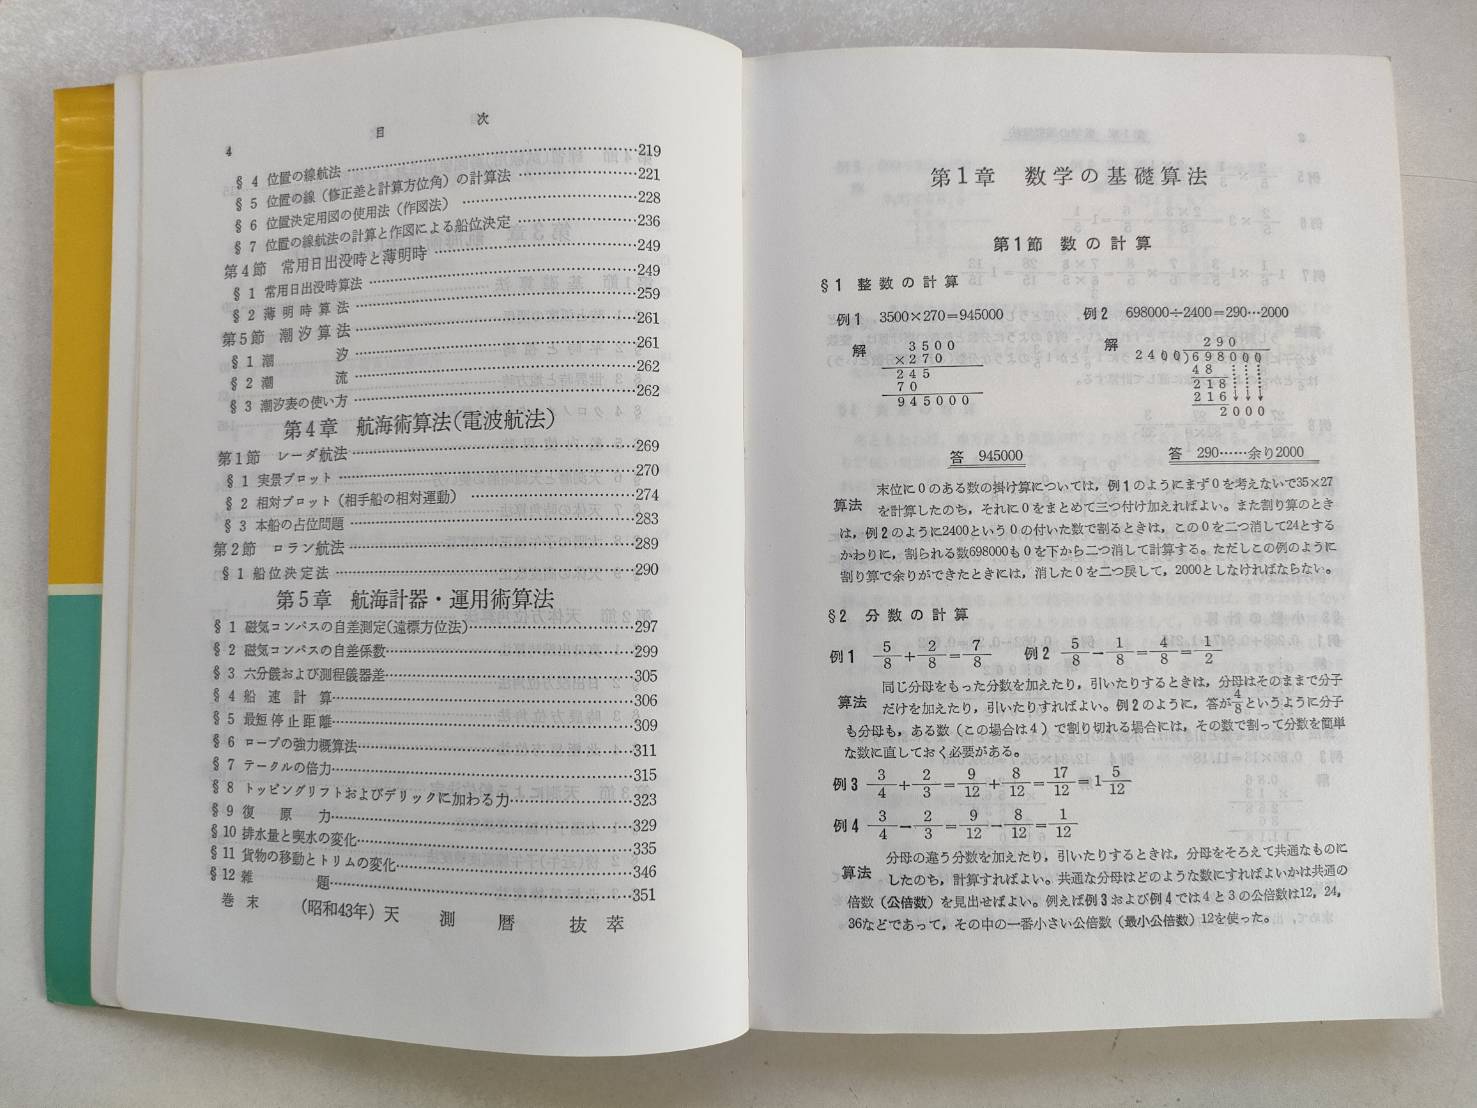 目 次
4
§ 4 位置の線航法 ……219
§ 5 位置の線（修正差と計算方位角）の計算法 ……221
§ 6 位置決定用図の使用法（作図法） ……228
§ 7 位置の線航法の計算と作図による船位決定 ……236
第4節 常用日出没時と薄明時 ……249
§ 1 常用日出没時算法……249
§ 2 薄明時算法……259
第5節 潮汐算法……261
§ 1 潮 汐……261
§ 2 潮 流……262
§ 3 潮汐表の使い方……262
第4章 航海術算法(電波航法)
第1節 レーダ航法……269
§ 1 実景プロット……270
§ 2 相対プロット（相手船の相対運動） ……274
§ 3 本船の占位問題 ……283
第2節 ロラン航法……289
§ 1 船位決定法 ……290
第5章 航海計器・運用術算法
§ 1 磁気コンパスの自差測定(遠標方位法)……297
§ 2 磁気コンパスの自差係数……299
§ 3 六分儀および測程儀器差……305
§ 4 船速計算……306
§ 5 最短停止距離……309
§ 6 ロープの強力概算法……311
§ 7 テークルの倍力……315
§ 8 トッピングリフトおよびデリックに加わる力……323
§ 9 復原力……329
§10 排水量と喫水の変化……335
§11 貨物の移動とトリムの変化……346
§12 雑 題……351
巻末 （昭和43年）天測暦抜萃
第1章 数学の基礎算法
第1節 数の計算
§1 整数の計算
例1 3500×270=945000 例2 698000÷2400=290…2000
解 3500
×270
245
70
945000
答 945000
解 290
2400)698000
48
218
216
2000
答 290……余り2000
算法 末位に0のある数の掛け算については，例1のようにまず0を考えないで35×27
を計算したのち，それに0をまとめて三つ付け加えればよい。また割り算のとき
は，例2のように2400という0の付いた数で割るときは，この0を二つ消して24とする
かわりに，割られる数698000も0を下から二つ消して計算する。ただしこの例のように
割り算で余りができたときには，消した0を二つ戻して，2000としなければならない。
§2 分数の計算
例1 5/8+2/8=7/8 例2 5/8−1/8=4/8=1/2
算法 同じ分母をもった分数を加えたり，引いたりするときは，分母はそのままで分子
だけを加えたり，引いたりすればよい。例2のように，答が4/8というように分子
も分母も，ある数（この場合は4）で割り切れる場合には，その数で割って分数を簡単
な数に直しておく必要がある。
例3 3/4+2/3=9/12+8/12=17/12=1 5/12
例4 3/4−2/3=9/12−8/12=1/12
算法 分母の違う分数を加えたり，引いたりするときは，分母をそろえて共通なものに
したのち，計算すればよい。共通な分母はどのような数にすればよいかは共通の
倍数（公倍数）を見出せばよい。例えば例3および例4では4と3の公倍数は12，24，
36などであって，その中の一番小さい公倍数（最小公倍数）12を使った。